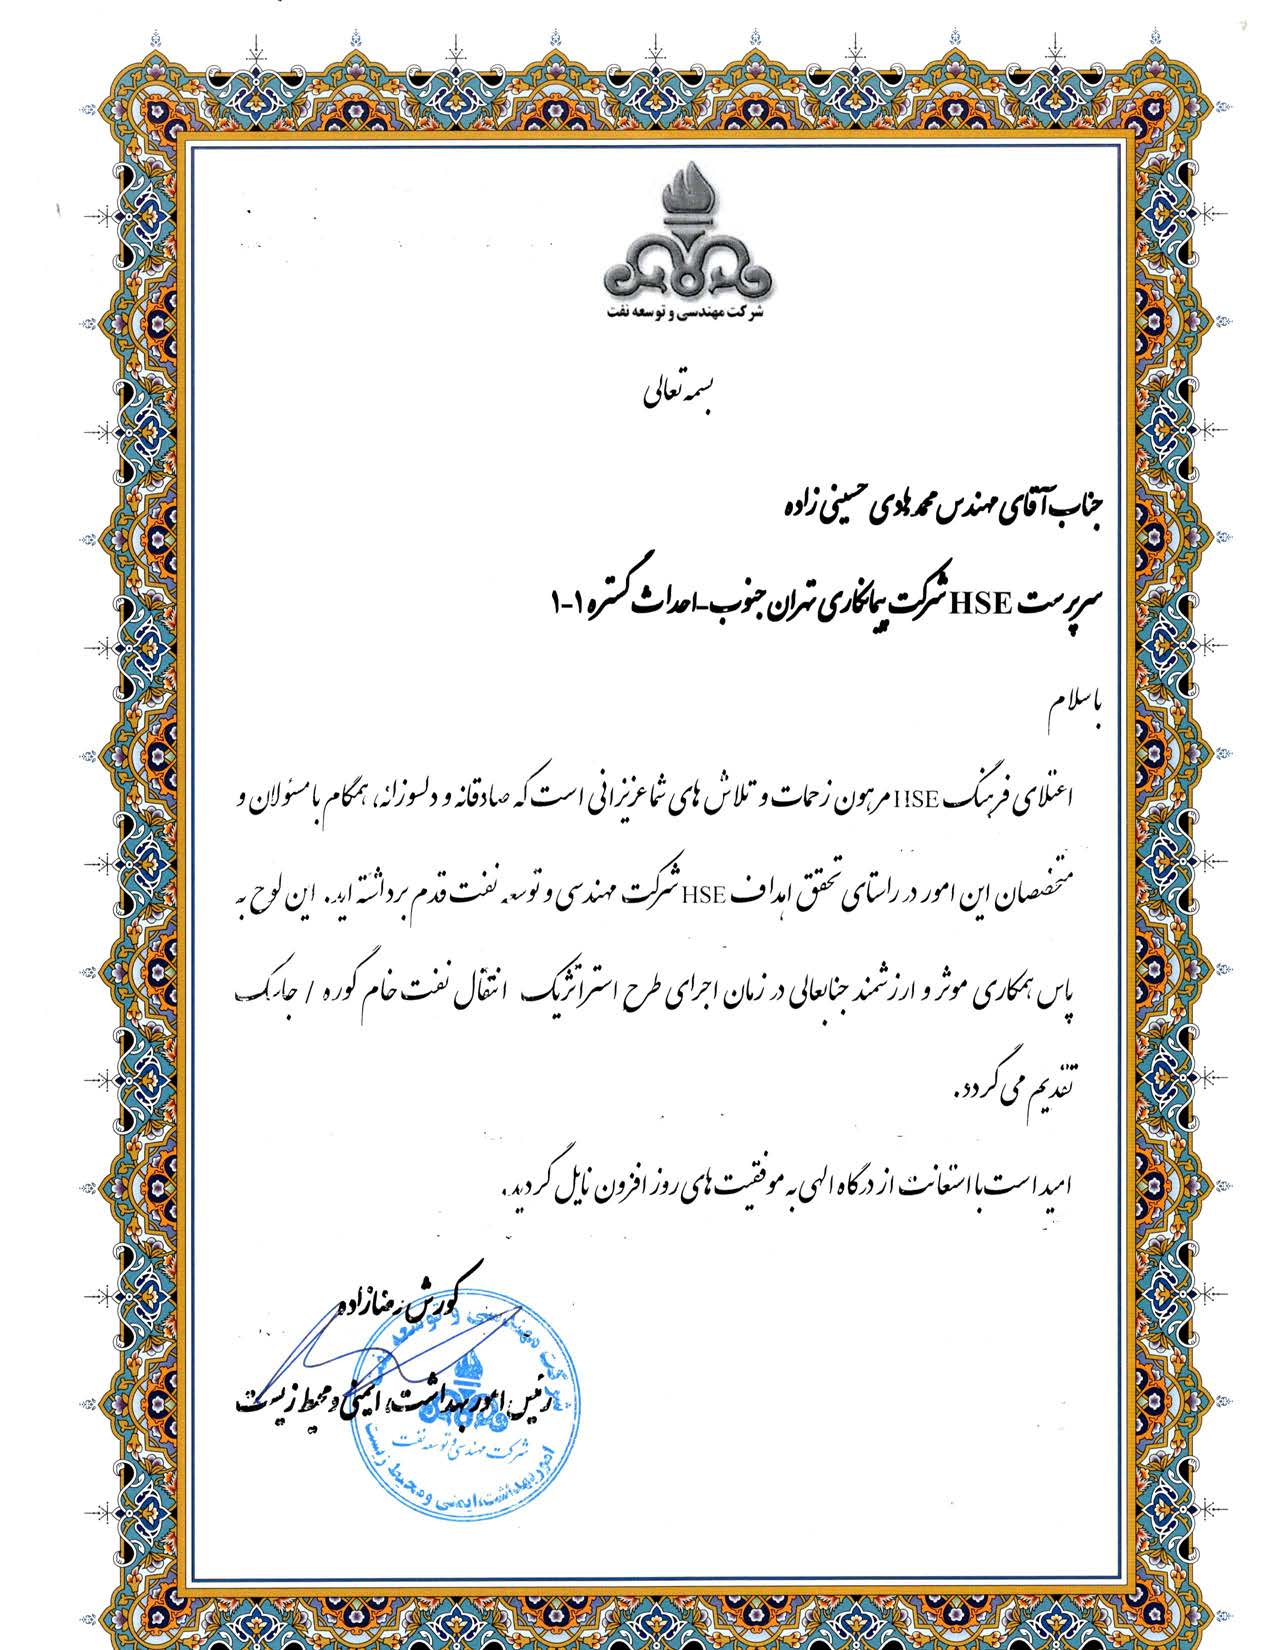 شرکت مهندسی و توسعه نفت
بسمه تعالی
جناب آقای مهندس محمد هادی حسینی زاده
سرپرست HSE شرکت پیمانکاری تهران جنوب-احداث گستره ۱-۱
با سلام
اعتلای فرهنگ HSE مرهون زحمات و تلاش های شما عزیزانی است که صادقانه و دلسوزانه، همگام با مسئولان و
متخصصان این امور در راستای تحقق اهداف HSE شرکت مهندسی و توسعه نفت قدم برداشته اید. این لوح به
پاس همکاری موثر و ارزشمند جنابعالی در زمان اجرای طرح استراتژیک انتقال نفت خام گوره / جاسک
تقدیم می گردد.
امید است با استعانت از درگاه الهی به موفقیت های روز افزون نایل گردید.
کورش رضازاده
رئیس امور بهداشت، ایمنی و محیط زیست
شرکت مهندسی و توسعه نفت
شرکت مهندسی و توسعه نفت
امور بهداشت، ایمنی و محیط زیست